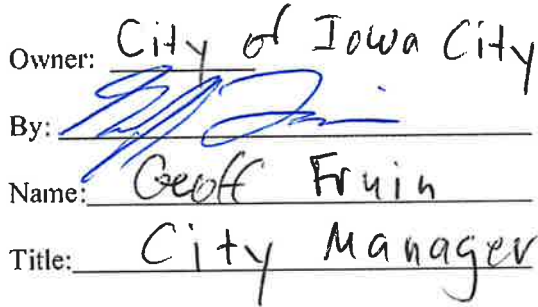 Owner: City of Iowa City
By:
Name: Geoff Fruin
Title: City Manager